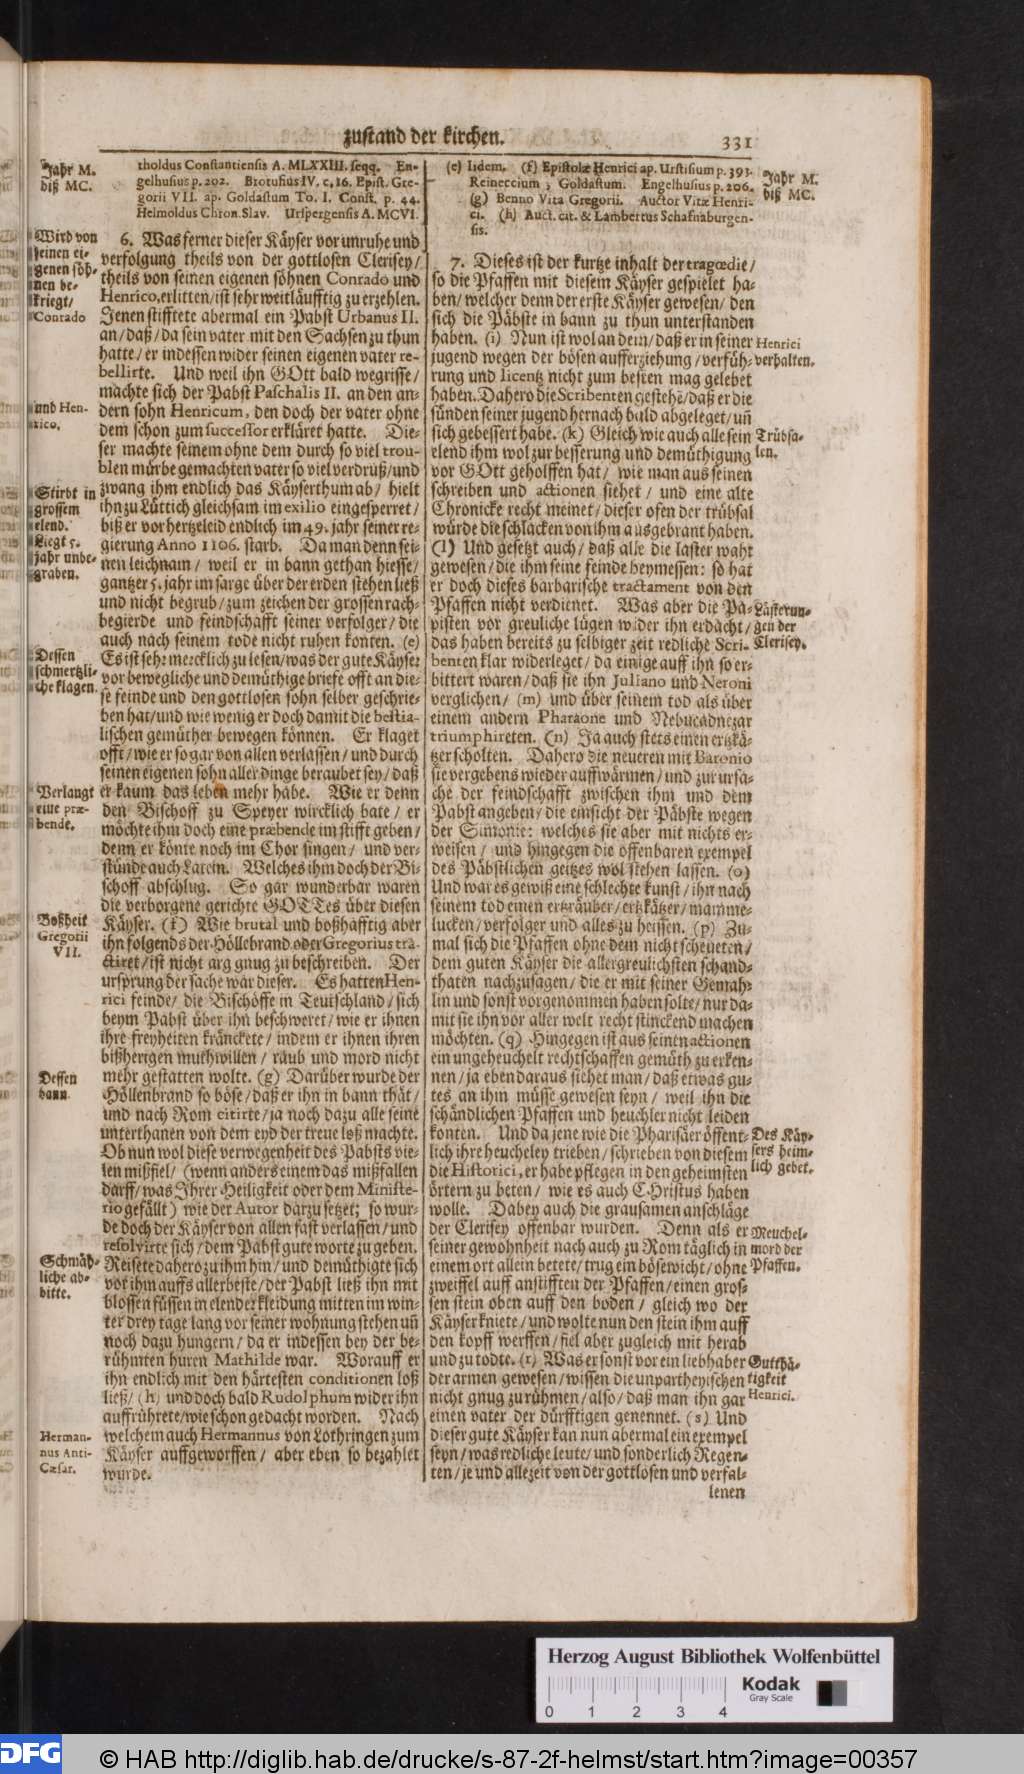 zustand der kirchen.
331
Jahr M.
biß MC.
tholdus Constantiensis A. MLXXIII. seqq. En-
gelhusius p. 202. Brotufius IV. c. 16. Epist. Gre-
gorii VII. ap. Goldastum To. I. Const. p. 44.
Helmoldus Chron. Slav. Urspergensis A. MCVI.
Wird von
seinen ei-
genen söh-
nen be-
kriegt/
Conrado
und Hen-
rico.
Stirbt in
grossem
elend.
Liegt 5.
jahr unbe-
graben.
Dessen
schmertzli-
che klagen.
Verlangt
eine præ-
bende.
Boßheit
Gregorii
VII.
Dessen
bann.
Schmäh-
liche ab-
bitte.
Herman-
nus Anti-
Cæsar.
6. Was ferner dieser Käyser vor unruhe und
verfolgung theils von der gottlosen Clerisey/
theils von seinen eigenen söhnen Conrado und
Henrico, erlitten/ ist sehr weitläufftig zu erzehlen.
Jenen stifftete abermal ein Pabst Urbanus II.
an/ daß/ da sein vater mit den Sachsen zu thun
hatte/ er indessen wider seinen eigenen vater re-
bellirte. Und weil ihn GOtt bald wegrisse/
machte sich der Pabst Paschalis II. an den an-
dern sohn Henricum, den doch der vater ohne
dem schon zum successor erkläret hatte. Die-
ser machte seinem ohne dem durch so viel trou-
blen mürbe gemachten vater so viel verdruß/ und
zwang ihm endlich das Käyserthum ab/ hielt
ihn zu Lüttich gleichsam im exilio eingesperret/
biß er vor hertzeleid endlich im 49. jahr seiner re-
gierung Anno 1106. starb. Da man denn sei-
nen leichnam/ weil er in bann gethan hiesse/
gantzer 5. jahr im sarge über der erden stehen ließ
und nicht begrub/ zum zeichen der grossen rach-
begierde und feindschafft seiner verfolger/ die
auch nach seinem tode nicht ruhen konten. (e)
Es ist sehr mercklich zu lesen/ was der gute Käyser
vor bewegliche und demüthige briefe offt an die-
se feinde und den gottlosen sohn selber geschrie-
ben hat/ und wie wenig er doch damit die bestia-
lischen gemüther bewegen können. Er klaget
offt/ wie er so gar von allen verlassen/ und durch
seinen eigenen sohn aller dinge beraubet sey/ daß
er kaum das leben mehr habe. Wie er denn
den Bischoff zu Speyer wircklich bate/ er
möchte ihm doch eine præbende im stifft geben/
denn er könte noch im Chor singen/ und ver-
stünde auch Latein. Welches ihm doch der Bi-
schoff abschlug. So gar wunderbar waren
die verborgene gerichte GOTTes über diesen
Käyser. (f) Wie brutal und boßhafftig aber
ihn folgends der Höllebrand oder Gregorius tra-
ctiret/ ist nicht arg gnug zu beschreiben. Der
ursprung der sache war dieser. Es hatten Hen-
rici feinde/ die Bischöffe in Teutschland/ sich
beym Pabst über ihn beschweret/ wie er ihnen
ihre freyheiten kränckete/ indem er ihnen ihren
bißherigen muthwillen/ raub und mord nicht
mehr gestatten wolte. (g) Darüber wurde der
Höllenbrand so böse/ daß er ihn in bann thät/
und nach Rom citirte/ ja noch dazu alle seine
unterthanen von dem eyd der treue loß machte.
Ob nun wol diese verwegenheit des Pabsts vie-
len mißfiel/ (wenn anders einem das mißfallen
darff/ was Ihrer Heiligkeit oder dem Ministe-
rio gefällt) wie der Autor darzu setzet; so wur-
de doch der Käyser von allen fast verlassen/ und
resolvirte sich/ dem Pabst gute worte zu geben.
Reisete dahero zu ihm hin/ und demüthigte sich
vor ihm auffs allerbeste/ der Pabst ließ ihn mit
blossen füssen in elender kleidung mitten im win-
ter drey tage lang vor seiner wohnung stehen uñ
noch dazu hungern/ da er indessen bey der be-
rühmten huren Mathilde war. Worauff er
ihn endlich mit den härtesten conditionen loß
ließ/ (h) und doch bald Rudolphum wider ihn
auffrührete/ wie schon gedacht worden. Nach
welchem auch Hermannus von Lothringen zum
Käyser auffgeworffen/ aber eben so bezahlet
wurde.
(e) Iidem. (f) Epistolæ Henrici ap. Urstisium p. 393.
Reinereccium, Goldastum. Engelhusius p. 206.
(g) Benno Vita Gregorii. Auctor Vitæ Henri-
ci. (h) Auct. cit. & Lambertus Schafnaburgen-
sis.
7. Dieses ist der kurtze inhalt der tragœdie/
so die Pfaffen mit diesem Käyser gespielet ha-
ben/ welcher denn der erste Käyser gewesen/ den
sich die Päbste in bann zu thun unterstanden
haben. (i) Nun ist wol an dem/ daß er in seiner
jugend wegen der bösen aufferziehung/ verfüh-
rung und licentz nicht zum besten mag gelebet
haben. Dahero die Scribenten gestehē/ daß er die
sünden seiner jugend hernach bald abgeleget/ uñ
sich gebessert habe. (k) Gleich wie auch alle sein
elend ihm wol zur besserung und demüthigung
vor GOtt geholffen hat/ wie man aus seinen
schreiben und actionen siehet/ und eine alte
Chronicke recht meinet/ dieser ofen der trübsal
würde die schlacken von ihm ausgebrant haben.
(l) Und gesetzt auch/ daß alle die laster waht
gewesen/ die ihm seine feinde beymessen: so hat
er doch dieses barbarische tractament von den
Pfaffen nicht verdienet. Was aber die Pa-
pisten vor greuliche lügen wider ihn erdacht/
das haben bereits zu selbiger zeit redliche Scri-
benten klar widerleget/ da einige auff ihn so er-
bittert waren/ daß sie ihn Juliano und Neroni
verglichen/ (m) und über seinem tod als über
einem andern Pharaone und Nebucadnezar
triumphireten. (n) Ja auch stets einen ertzkä-
tzer scholten. Dahero die neueren mit Baronio
sie vergebens wieder auffwärmen/ und zur ursa-
che der feindschafft zwischen ihm und dem
Pabst angeben/ die einsicht der Päbste wegen
der Simonie: welches sie aber mit nichts er-
weisen/ und hingegen die offenbaren exempel
des Päbstlichen geitzes wol stehen lassen. (o)
Und war es gewiß eine schlechte kunst/ ihn nach
seinem tod einen ertzräuber/ ertzkätzer/ mamme-
lucken/ verfolger und alles zu heissen. (p) Zu-
mal sich die Pfaffen ohne dem nicht scheueten/
dem guten Käyser die allergreulichsten schand-
thaten nachzusagen/ die er mit seiner Gemah-
lin und sonst vorgenommen haben solte/ nur da-
mit sie ihn vor aller welt recht stinckend machen
möchten. (q) Hingegen ist aus seinen actionen
ein ungeheuchelt rechtschaffen gemüth zu erken-
nen/ ja eben daraus siehet man/ daß etwas gu-
tes an ihm müsse gewesen seyn/ weil ihn die
schändlichen Pfaffen und heuchler nicht leiden
konten. Und da jene wie die Pharisäer öffent-
lich ihre heucheley trieben/ schrieben von diesem
die Historici, er habe pflegen in den geheimsten
örtern zu beten/ wie es auch CHristus haben
wolle. Dabey auch die grausamen anschläge
der Clerisey offenbar wurden. Denn als er
seiner gewohnheit nach auch zu Rom täglich in
einem ort allein betete/ trug ein bösewicht/ ohne
zweiffel auff anstifften der Pfaffen/ einen gros-
sen stein oben auff den boden/ gleich wo der
Käyser kniete/ und wolte nun den stein ihm auff
den kopff werffen/ fiel aber zugleich mit herab
und zu todte. (r) Was er sonst vor ein liebhaber
der armen gewesen/ wissen die unpartheyischen
nicht gnug zu rühmen/ also/ daß man ihn gar
einen vater der dürfftigen genennet. (s) Und
dieser gute Käyser kan nun abermal ein exempel
seyn/ was redliche leute/ und sonderlich Regen-
ten/ je und allezeit von der gottlosen und verfal-
lenen
Jahr M.
biß MC.
Henrici
verhalten.
Trübsa-
len.
Lästerun-
gen der
Clerisey.
Des Käy-
sers heim-
lich gebet.
Meuchel-
mord der
Pfaffen.
Gutthä-
tigkeit
Henrici.
Herzog August Bibliothek Wolfenbüttel
Kodak
Gray Scale
0 1 2 3 4
DFG
© HAB http://diglib.hab.de/drucke/s-87-2f-helmst/start.htm?image=00357